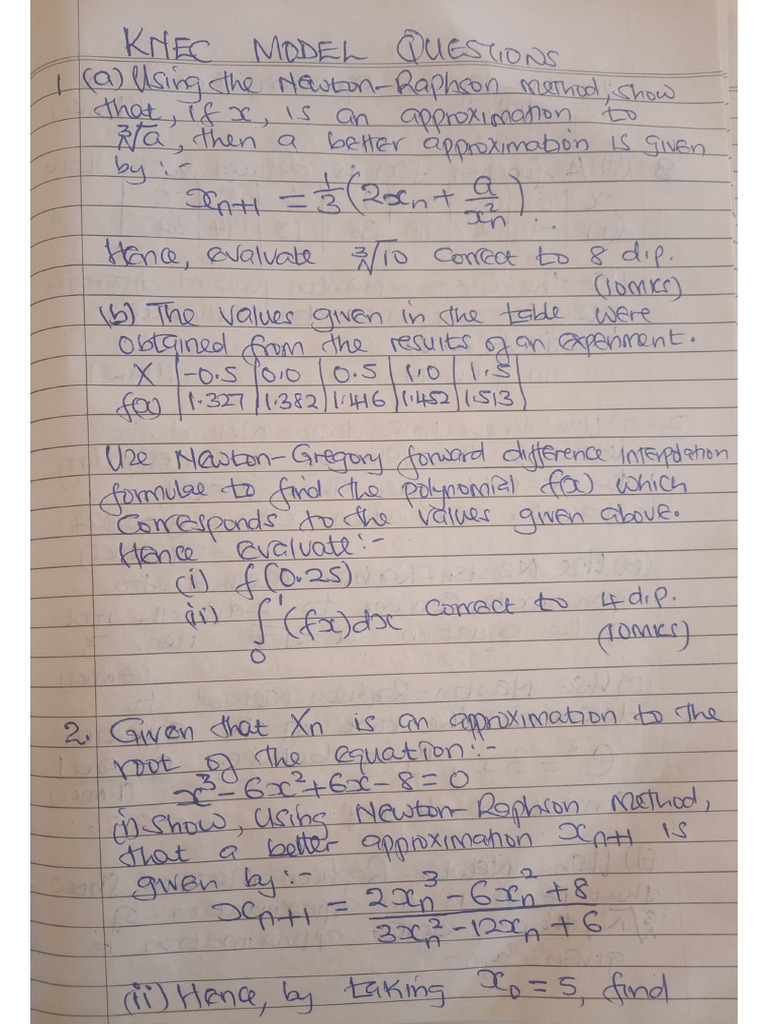 KNEC MODEL QUESTIONS
1 (a) Using the Newton-Raphson method, show
that, if x, is an approximation to
∛a, then a better approximation is given
by :-
xₙ₊₁ = 1/3 (2xₙ + a/xₙ²).
Hence, evaluate ∛10 correct to 8 d.p.
(10mks)
(b) The values given in the table were
obtained from the results of an experiment.
X | -0.5 | 0.0 | 0.5 | 1.0 | 1.5
f(x) | 1.327 | 1.382 | 1.416 | 1.452 | 1.513
Use Newton-Gregory forward difference interpolation
formulae to find the polynomial f(x) which
corresponds to the values given above.
Hence evaluate:-
(i) f(0.25)
(ii) ∫₀¹ (fx)dx correct to 4 d.p.
(10mks)
2. Given that Xn is an approximation to the
root of the equation:-
x³ - 6x² + 6x - 8 = 0
(i) Show, using Newton-Raphson Method,
that a better approximation xₙ₊₁ is
given by:-
xₙ₊₁ = (2xₙ³ - 6xₙ² + 8)/(3xₙ² - 12xₙ + 6)
(ii) Hence, by taking x₀ = 5, find